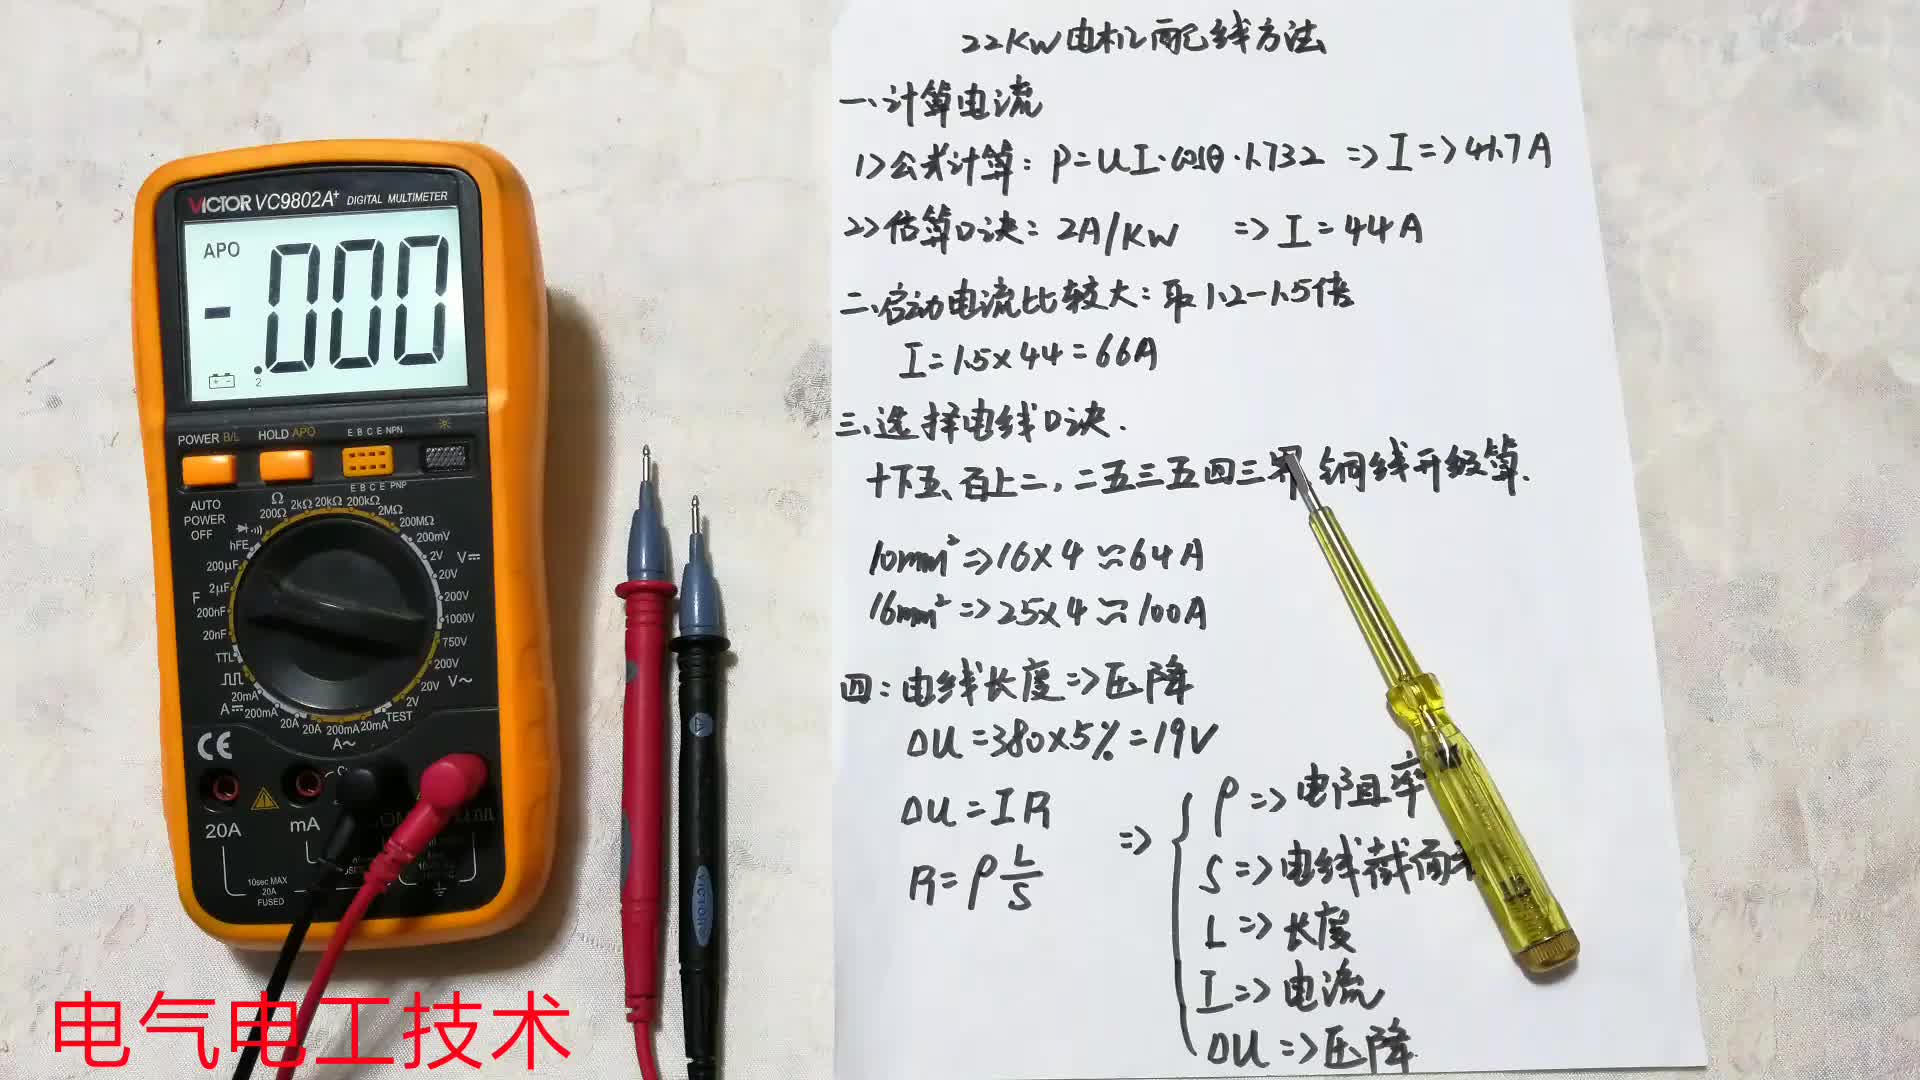 VICTOR VC9802A+ DIGITAL MULTIMETER
APO
-.000
2
POWER B/L
HOLD APO
E B C E NPN
E B C E PNP
AUTO
POWER
OFF
Ω
200Ω
2kΩ
20kΩ
200kΩ
2MΩ
200MΩ
hFE
200mV
200μF
2V
V
2μF
20V
F
200nF
200V
20nF
1000V
TTL
750V
200V
20mA
20V
V~
A
200mA
2V
20A
20A
200mA
20mA
TEST
A~
CE
20A
mA
10sec MAX
20A
FUSED
VICTOR
电气电工技术
22KW电机配线方法
一、计算电流
1>公式计算: P=UI·cosθ·1.732 => I => 41.7A
2>估算口诀: 2A/KW => I = 44A
二、启动电流比较大: 取1.2-1.5倍
I=1.5×44=66A
三、选择电线口诀.
十下五、百上二, 二五三五四三界, 铜线升级算.
10mm²=>16×4≈64A
16mm²=>25×4≈100A
四: 电线长度=>压降
ΔU=380×5%=19V
ΔU=IR
R=ρL/S
=>
ρ=>电阻率
S=>电线截面
L=>长度
I=>电流
ΔU=>压降